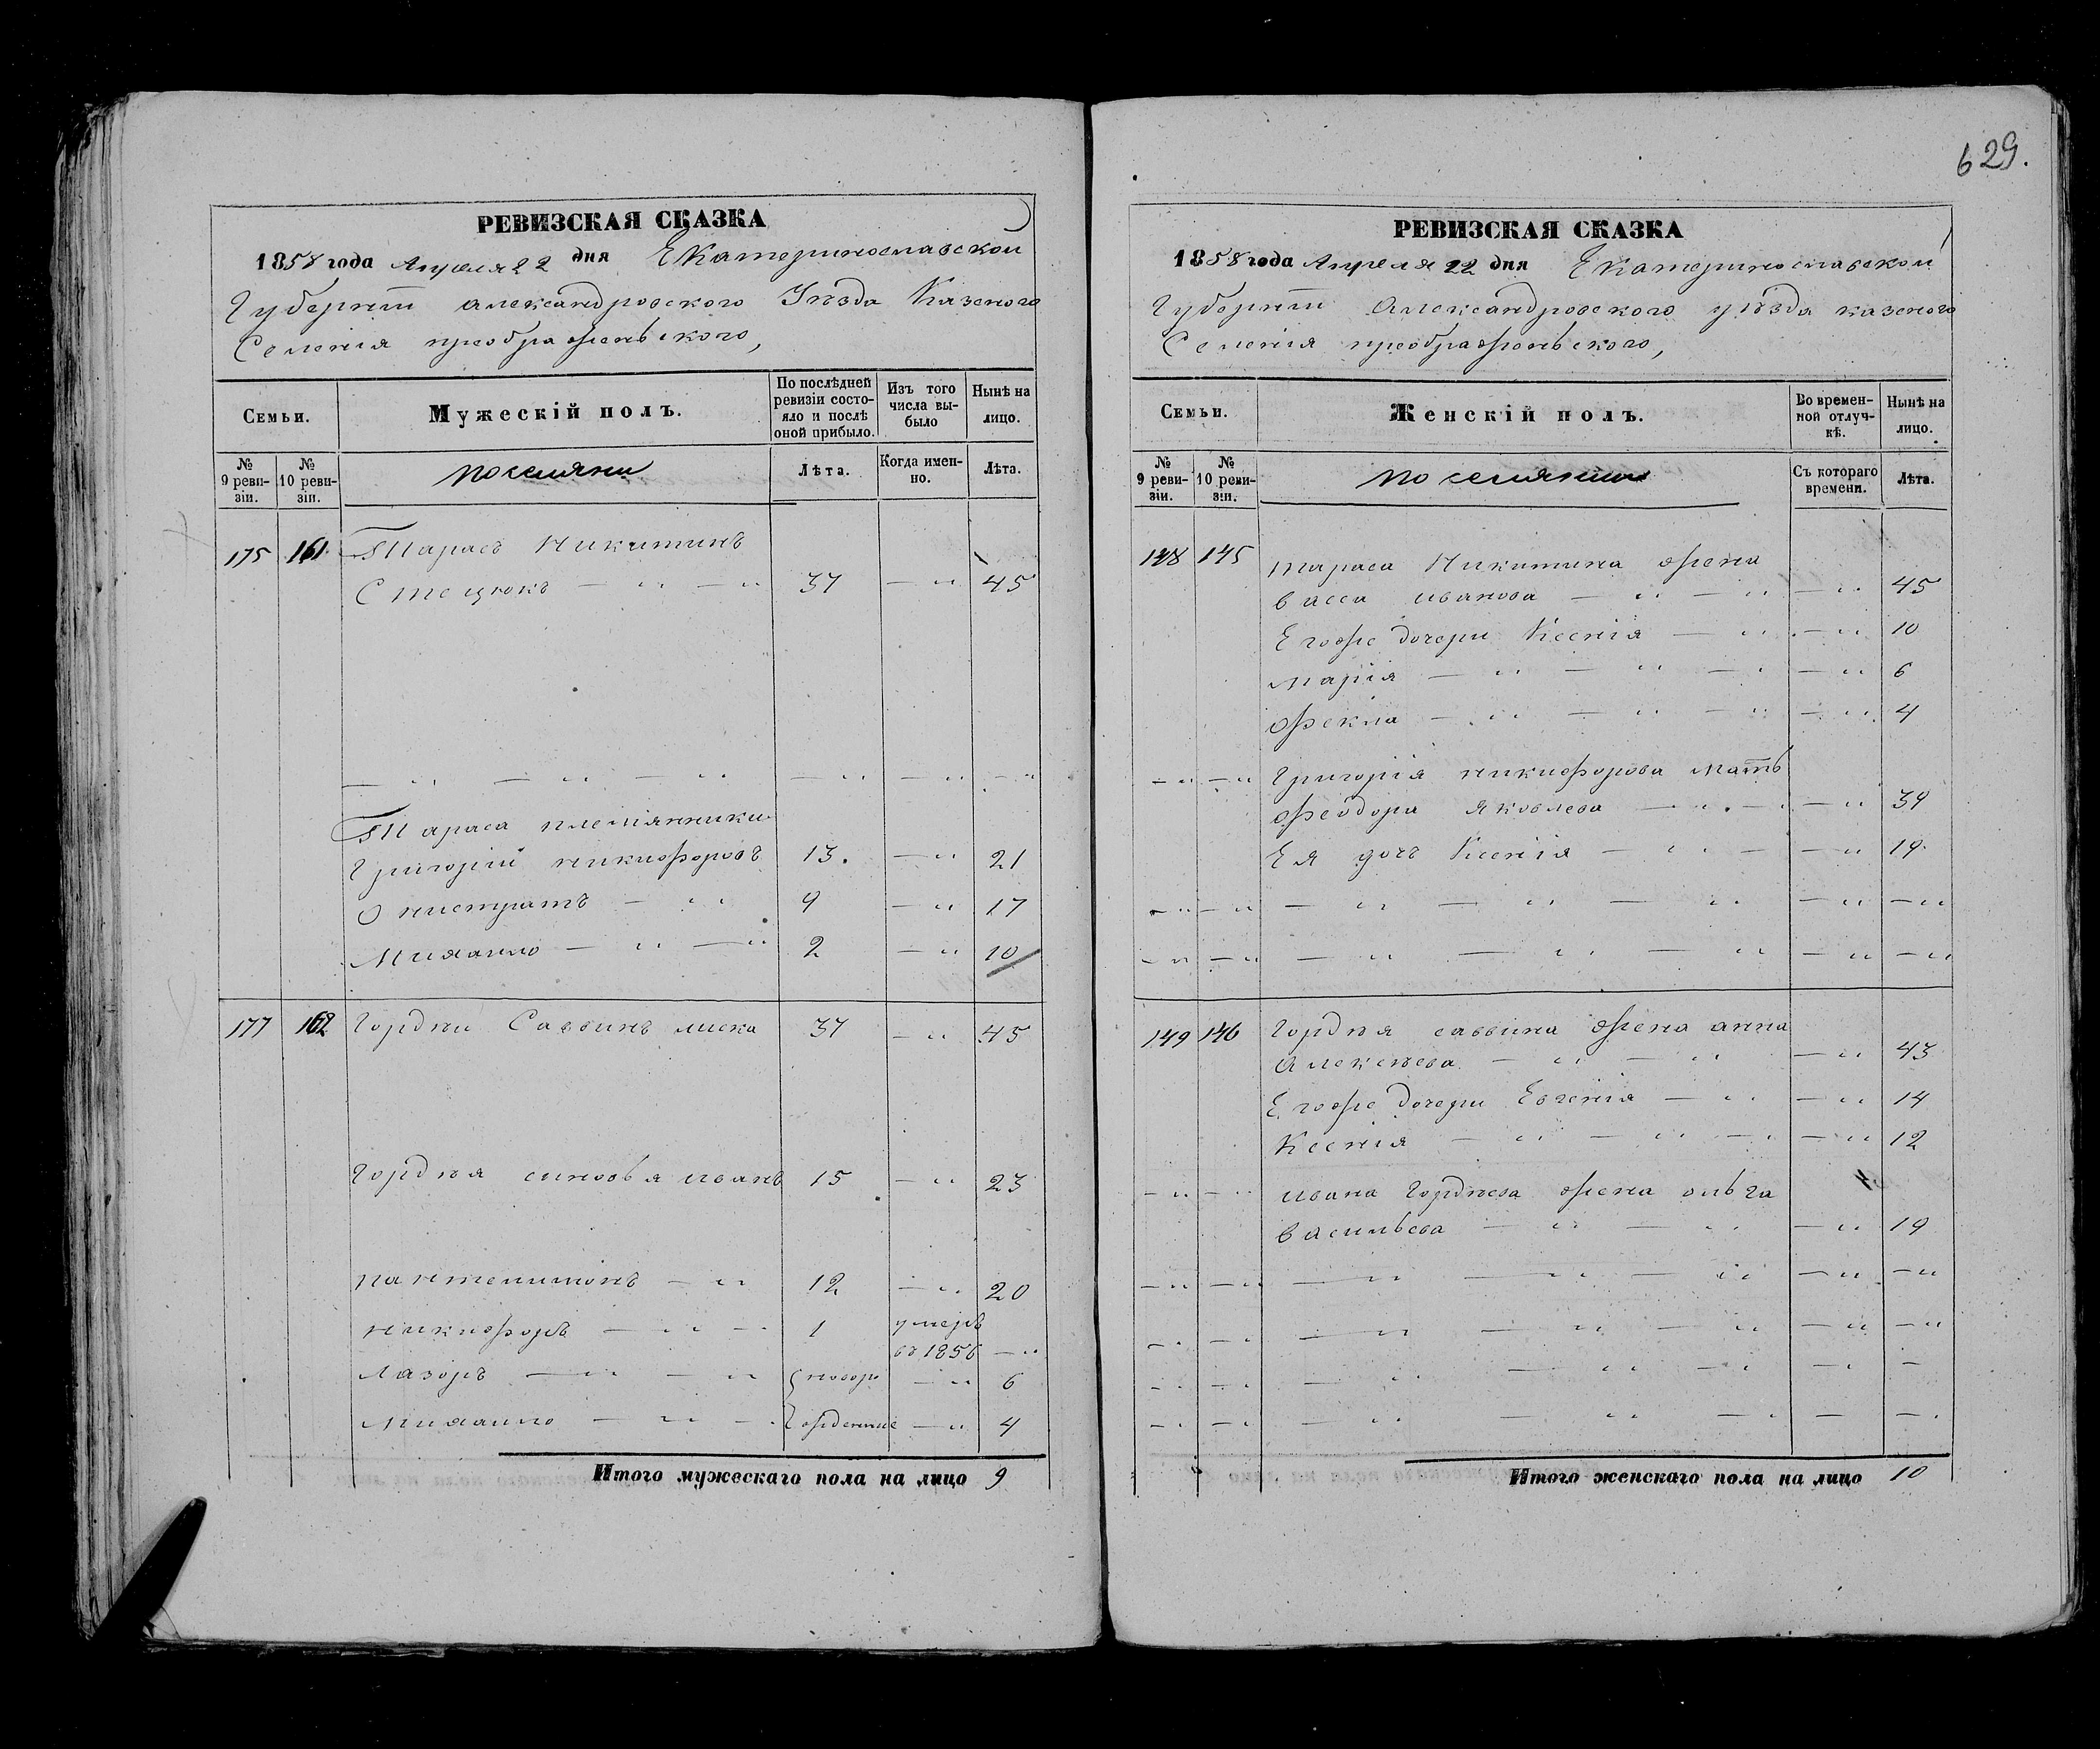 629.
РЕВИЗСКАЯ СКАЗКА
1858 года Апреля 22 дня Екатеринославской
Губернїи александровского Уѣзда Казеного
Селенія преображеньского,
Семьи.
Мужескій полъ.
По послѣдней ревизіи состо-
яло и послѣ
оной прибыло.
Изъ того
числа вы-
было
Нынѣ на
лицо.
№
9 реви-
зіи.
№
10 реви-
зіи.
поселяни
Лѣта.
Когда имен-
но.
Лѣта.
175 161 Тарасъ Никитинъ
Стецюкъ — " — " 37 — " 45
— " — " — " — " — " — "
Тараса племянники
Григорій никифоровъ 13. — " 21
Онистратъ — " 9 — " 17
Михаило — " — " 2 — " 10
177 162 Гордѣи Саввинъ лиска 37 — " 45
Гордѣя синовья иванъ 15 — " 23
пантелимонъ — " 12 — " 20
никифоръ — " — " 1 умеръ
въ 1856 — "
Лазоръ — " — " новоро — " 6
Михаило — " — " жденние — " 4
Итого мужескаго пола на лицо 9
РЕВИЗСКАЯ СКАЗКА
1858 года Апреля 22 дня Екатеринославской
Губернїи Александровского уѣзда казеного
Селенія преображеньского,
Семьи.
Женскій полъ.
Во времен-
ной отлуч-
кѣ.
Нынѣ на
лицо.
№
9 реви-
зіи.
№
10 реви-
зіи.
поселянки
Съ котораго
времени.
Лѣта.
148 145 тараса Никитина жена
васса иванова — " — " — " 45
Егоже дочери Ксенія — " — " 10
марія — " — " — " — " 6
фекла — " — " — " — " 4
— " — " Григорія никифорова мать
феодора яковлева — " — " — " 39
Ея дочь Ксенія — " — — " 19
— " — " — " — " — " — " — "
— " — " — " — " — " — " — "
149 146 Гордѣя саввина жена анна
Алексѣева — " — " — " 43
Егоже дочери Евгенія — " — " 14
Ксенія — " — " — " — " 12
— " — " ивана Гордѣева жена ольга
васильева — " — " — " 19
— " — " — " — " — " — " — "
— " — " — " — " — " — " — "
— " — " — " — " — " — " —
— " — " — " — " — " — — "
Итого женскаго пола на лицо 10